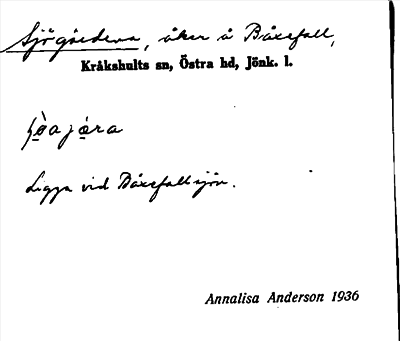 Sjögärdena, åker å Båxefall,
Kråkshults sn, Östra hd, Jönk. l.
Ligga vid Båxefallsjön.
Annalisa Anderson 1936